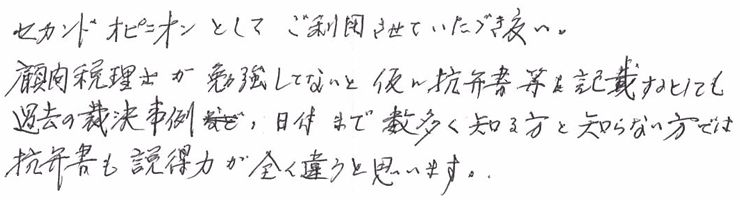 セカンドオピニオンとしてご利用させていただき度い。
顧問税理士が勉強してないと仮に抗弁書等を記載するとしても
過去の裁決事例、日付まで数多く知る方と知らない方では
抗弁書も説得力が全く違うと思います。